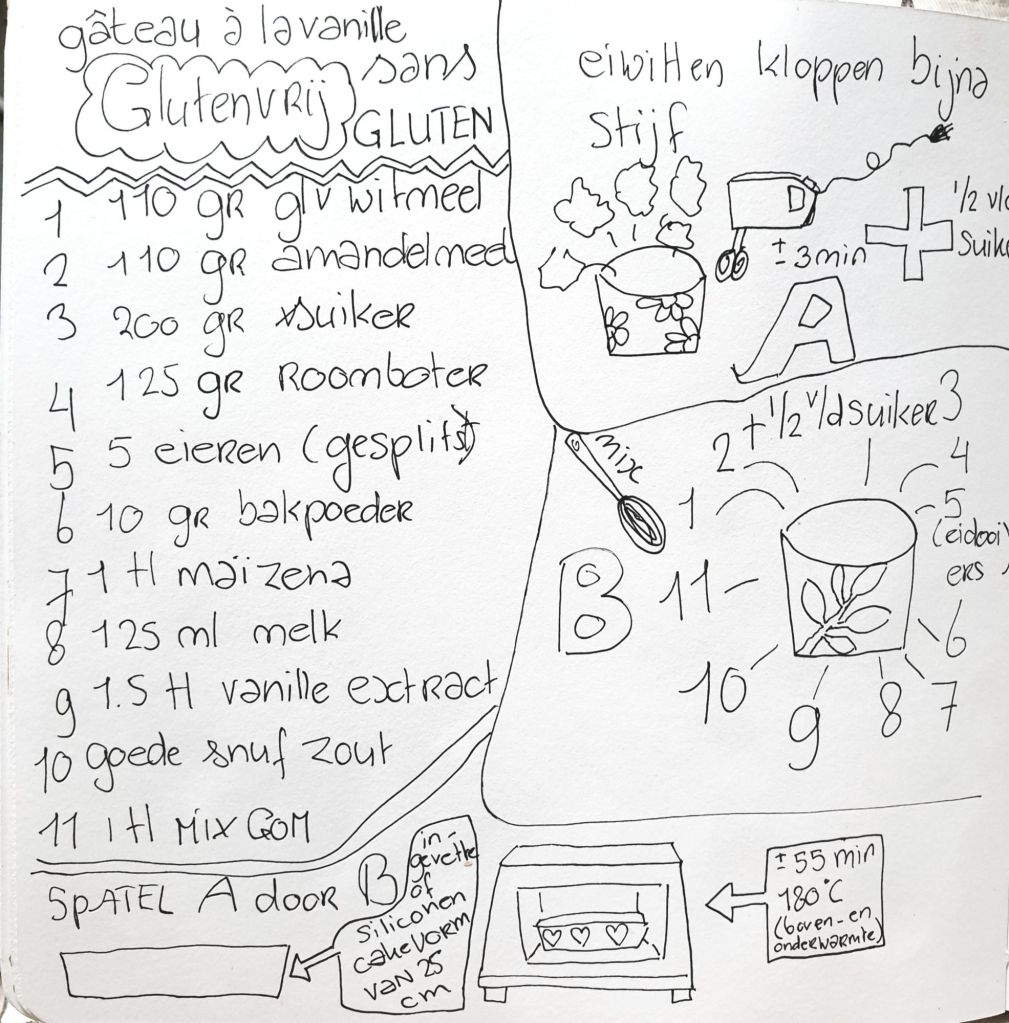 gâteau à la vanille
Glutenvrij
sans
GLUTEN
1 110 gr glv witmeel
2 110 gr amandelmeel
3 200 gr suiker
4 125 gr Roomboter
5 5 eieren (gesplitst)
6 10 gr bakpoeder
7 1 tl maïzena
8 125 ml melk
9 1.5 tl vanille extract
10 goede snuf zout
11 1 tl MIX GOM
SPATEL A door B
in-
gevette
of
siliconen
cakevorm
van 25
cm
eiwitten kloppen bijna
stijf
± 3 min
1/2 v/d
suike
A
mix
B
2 + 1/2 v/d suiker 3
1
4
5
(eidooi
ers)
11
6
10
9
8
7
± 55 min
180°C
(boven- en
onderwarmte)